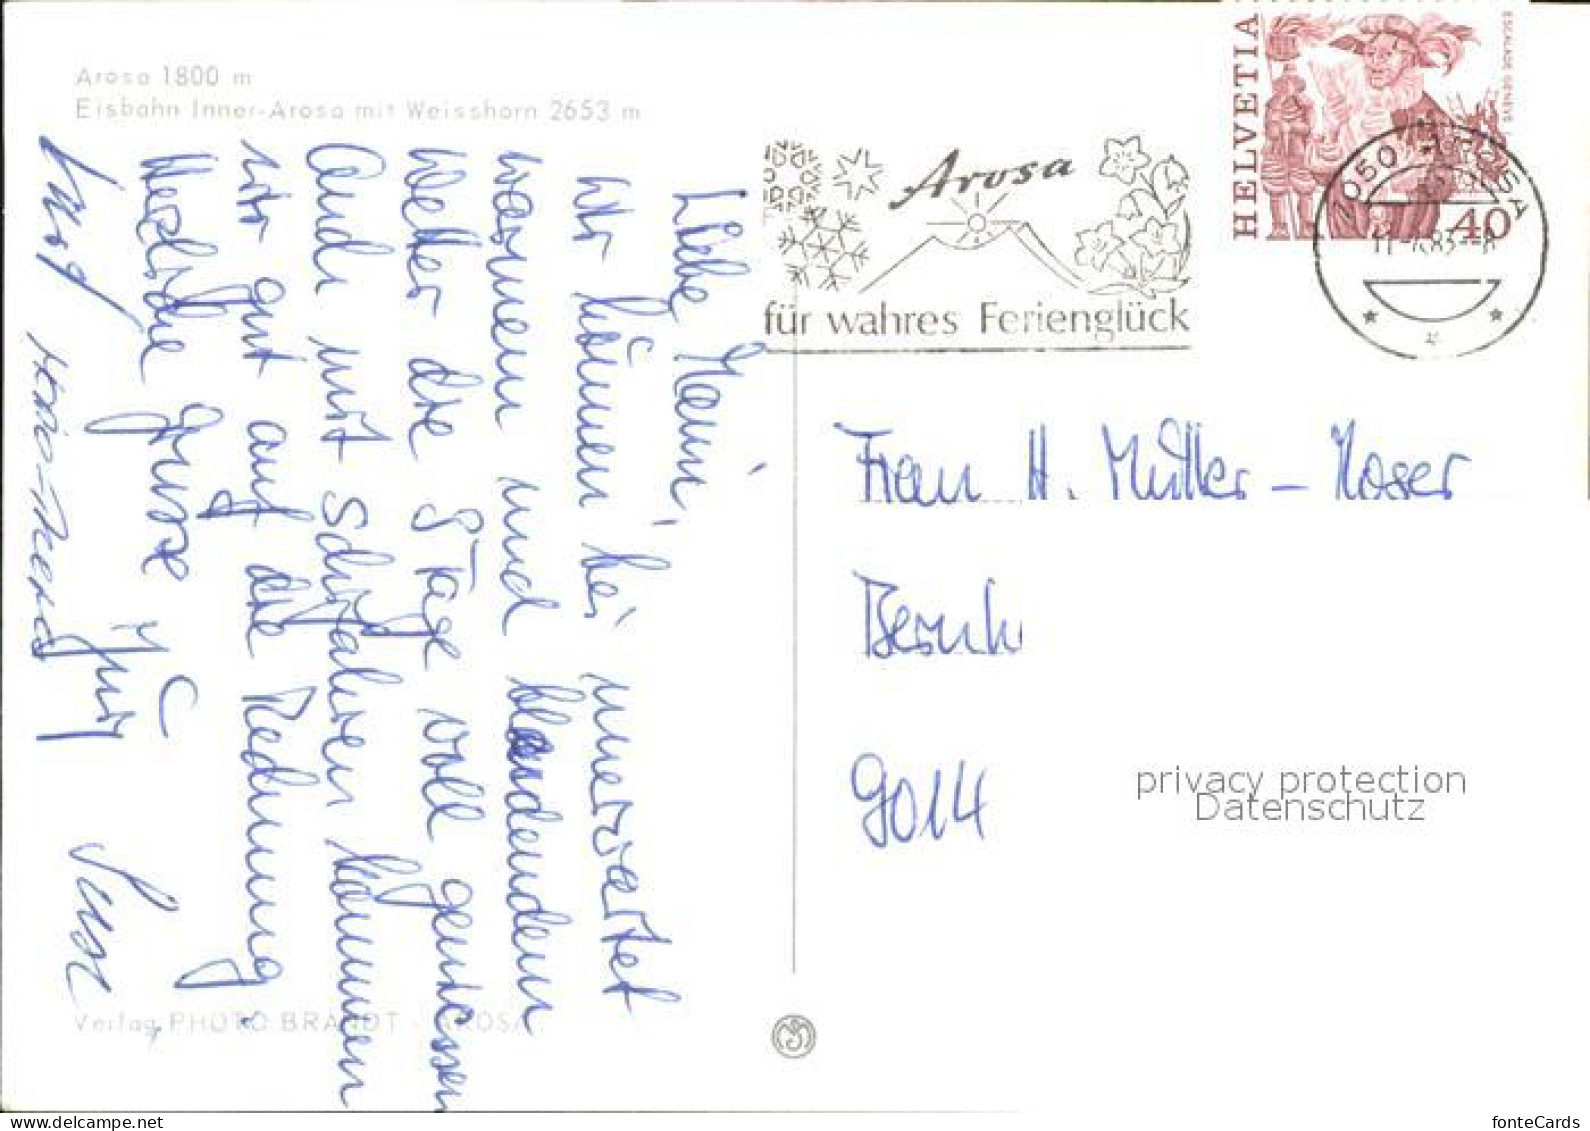 Arosa 1800 m
Eisbahn Inner-Arosa mit Weisshorn 2653 m
Liebe Mami,
wir können bei unerwartet
warmem und blendendem
Wetter die Tage voll geniessen
Auch mit Schifahren kommen
wir gut auf die Rechnung.
Herzliche Grüsse
Verlag PHOTO BRANDT - AROSA
Arosa
für wahres Ferienglück
HELVETIA
ESCALADE GENÈVE
40
7050 AROSA
Frau H. Müller - Moser
9014
privacy protection
Datenschutz
www.delcampe.net
fonteCards